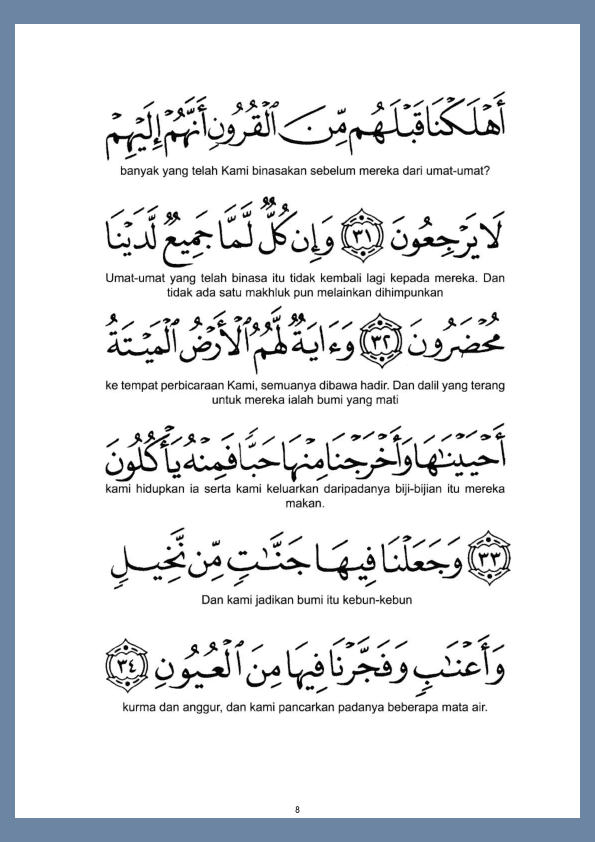 أَهْلَكْنَا قَبْلَهُم مِّنَ ٱلْقُرُونِ أَنَّهُمْ إِلَيْهِمْ
banyak yang telah Kami binasakan sebelum mereka dari umat-umat?
لَا يَرْجِعُونَ ٣١ وَإِن كُلٌّ لَّمَّا جَمِيعٌ لَّدَيْنَا
Umat-umat yang telah binasa itu tidak kembali lagi kepada mereka. Dan
tidak ada satu makhluk pun melainkan dihimpunkan
مُحْضَرُونَ ٣٢ وَءَايَةٌ لَّهُمُ ٱلْأَرْضُ ٱلْمَيْتَةُ
ke tempat perbicaraan Kami, semuanya dibawa hadir. Dan dalil yang terang
untuk mereka ialah bumi yang mati
أَحْيَيْنَـٰهَا وَأَخْرَجْنَا مِنْهَا حَبًّا فَمِنْهُ يَأْكُلُونَ
kami hidupkan ia serta kami keluarkan daripadanya biji-bijian itu mereka
makan.
٣٣ وَجَعَلْنَا فِيهَا جَنَّـٰتٍ مِّن نَّخِيلٍ
Dan kami jadikan bumi itu kebun-kebun
وَأَعْنَـٰبٍ وَفَجَّرْنَا فِيهَا مِنَ ٱلْعُيُونِ ٣٤
kurma dan anggur, dan kami pancarkan padanya beberapa mata air.
8